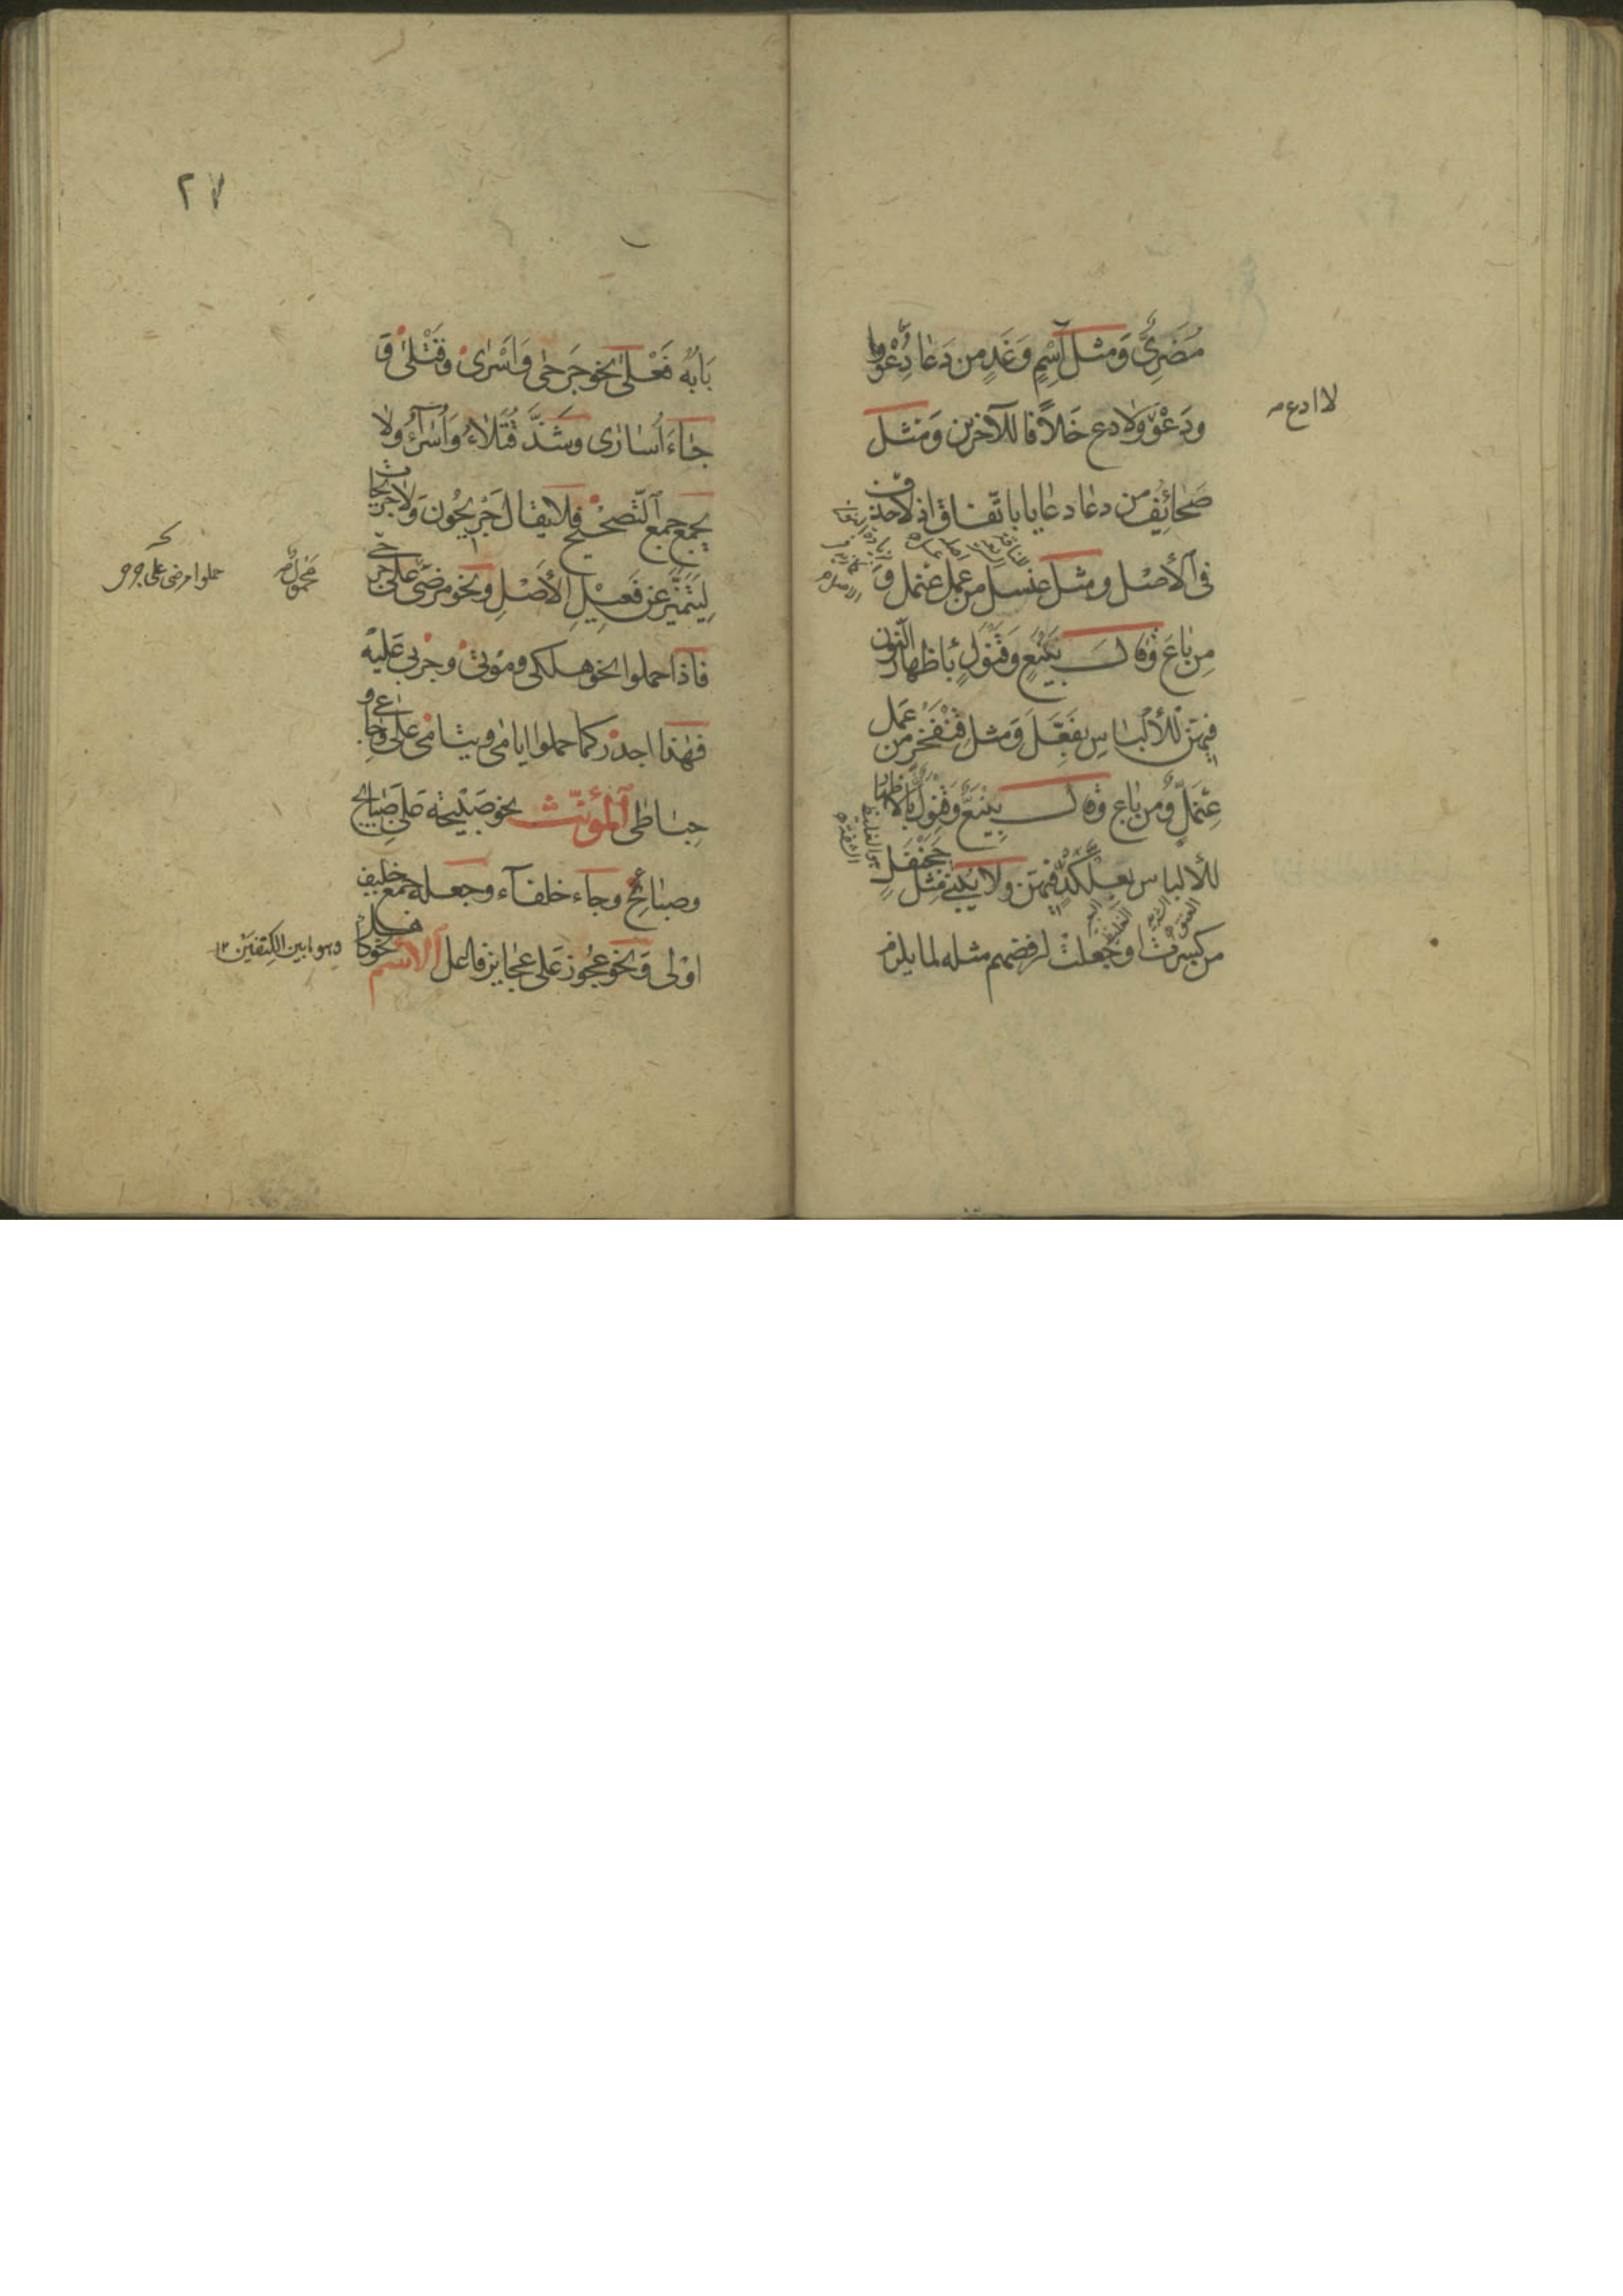 مُضَرِيٌّ وَمثل اسْمٍ وَغَدٍ من دَعَا دِعْوٌ
ودَعْوٌ ولا ادع خلافا للآخرين وَمثل
صَحائِفَ من دعا دعايا باتّفاق اذ لا حذف
فى الأصْل ومثل عنسل من عمل عنمل و
مِن بَاعَ وقال بَنْيَعٌ وَقَنْوَلٌ باظهار النّون
فيهنّ للألباس بفَعَّلَ وَمثل قِنْفَخْرٍ من عَمل
عِنْمَلٌّ ومن باع وقال بِنْيَعٌّ وَقِنْوَلٌّ بالاظهار
للألباس بعِلَّكْدٍ فيهنّ ولا يُبْنى مثل جَحَنْفَلٍ
من كَسرتُ او جَعلتُ لرفضهم مثله لما يلزم
لا ادع
٢٧
بَابُهُ فَعْلى نحو جَرحٰى وَاَسْرٰى وقَتْلٰى و
جَاءَ اُسَارى وشَذَّ قُتَلاءُ وَاُسَرَاءُ ولا
يجمع جمع التّصحيح فلا يقال جَريحُون وَلا جريحات
لِيَتَمَيَّز عن فَعِيْلِ الأَصْلِ ونحو مرضى على جرحى
فاذا حملوا نحو هلكى وموتى وجربى عَليْه
فهٰذا اجدر كما حملوا ايامٰى ويتامٰى على وَجَاعى و
حباطى المؤنّث نحو صَبيْحَة على صَبايح
وصباح وجاء خلفاء وجعله جمع خليف
اوْلى وَنحو عجُوز على عجايز فاعل الاسْم نحو كاهل
محمول
حملوا مرضى على
وهو ما بين الكتفين ١٢